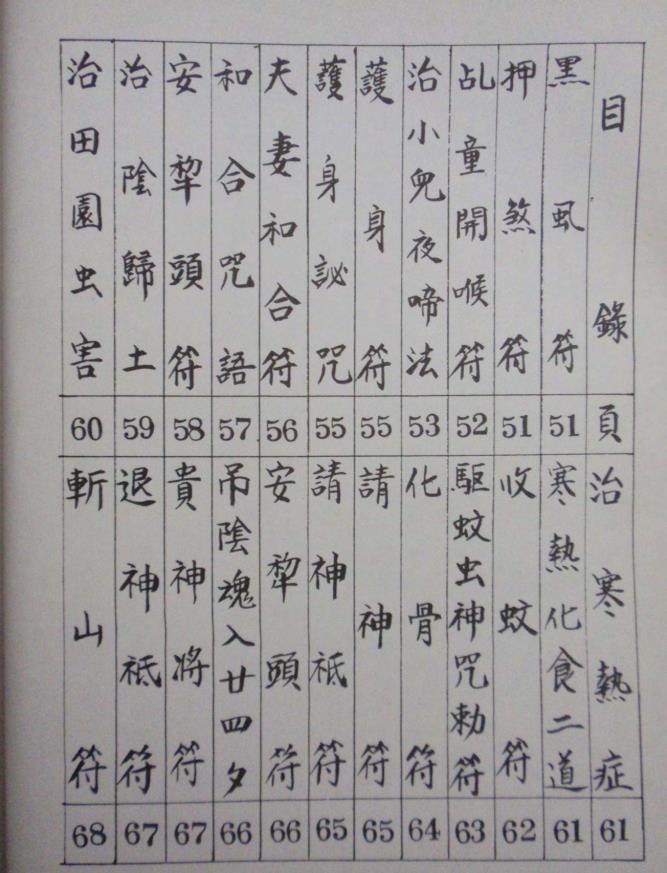 目錄 頁
黑虱符 51
押煞符 51
乩童開喉符 52
治小兒夜啼法 53
護身符 55
護身訣咒 55
夫妻和合符 56
和合咒語 57
安犂頭符 58
治陰歸土 59
治田園虫害 60
治寒熱症 61
寒熱化食二道 61
收蚊符 62
驅蚊虫神咒勅符 63
化骨符 64
請神符 65
請神祗符 65
安犂頭符 66
吊陰魂入廿四夕 66
貴神將符 67
退神祗符 67
斬山符 68